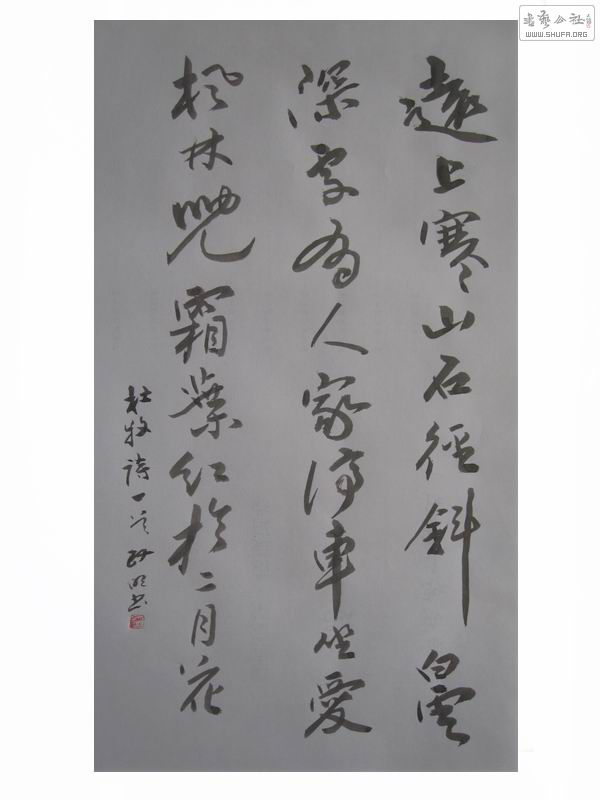 書藝公社
WWW.SHUFA.ORG
遠上寒山石徑斜白雲
深處有人家停車坐愛
楓林晚霜葉紅於二月花
杜牧詩一首